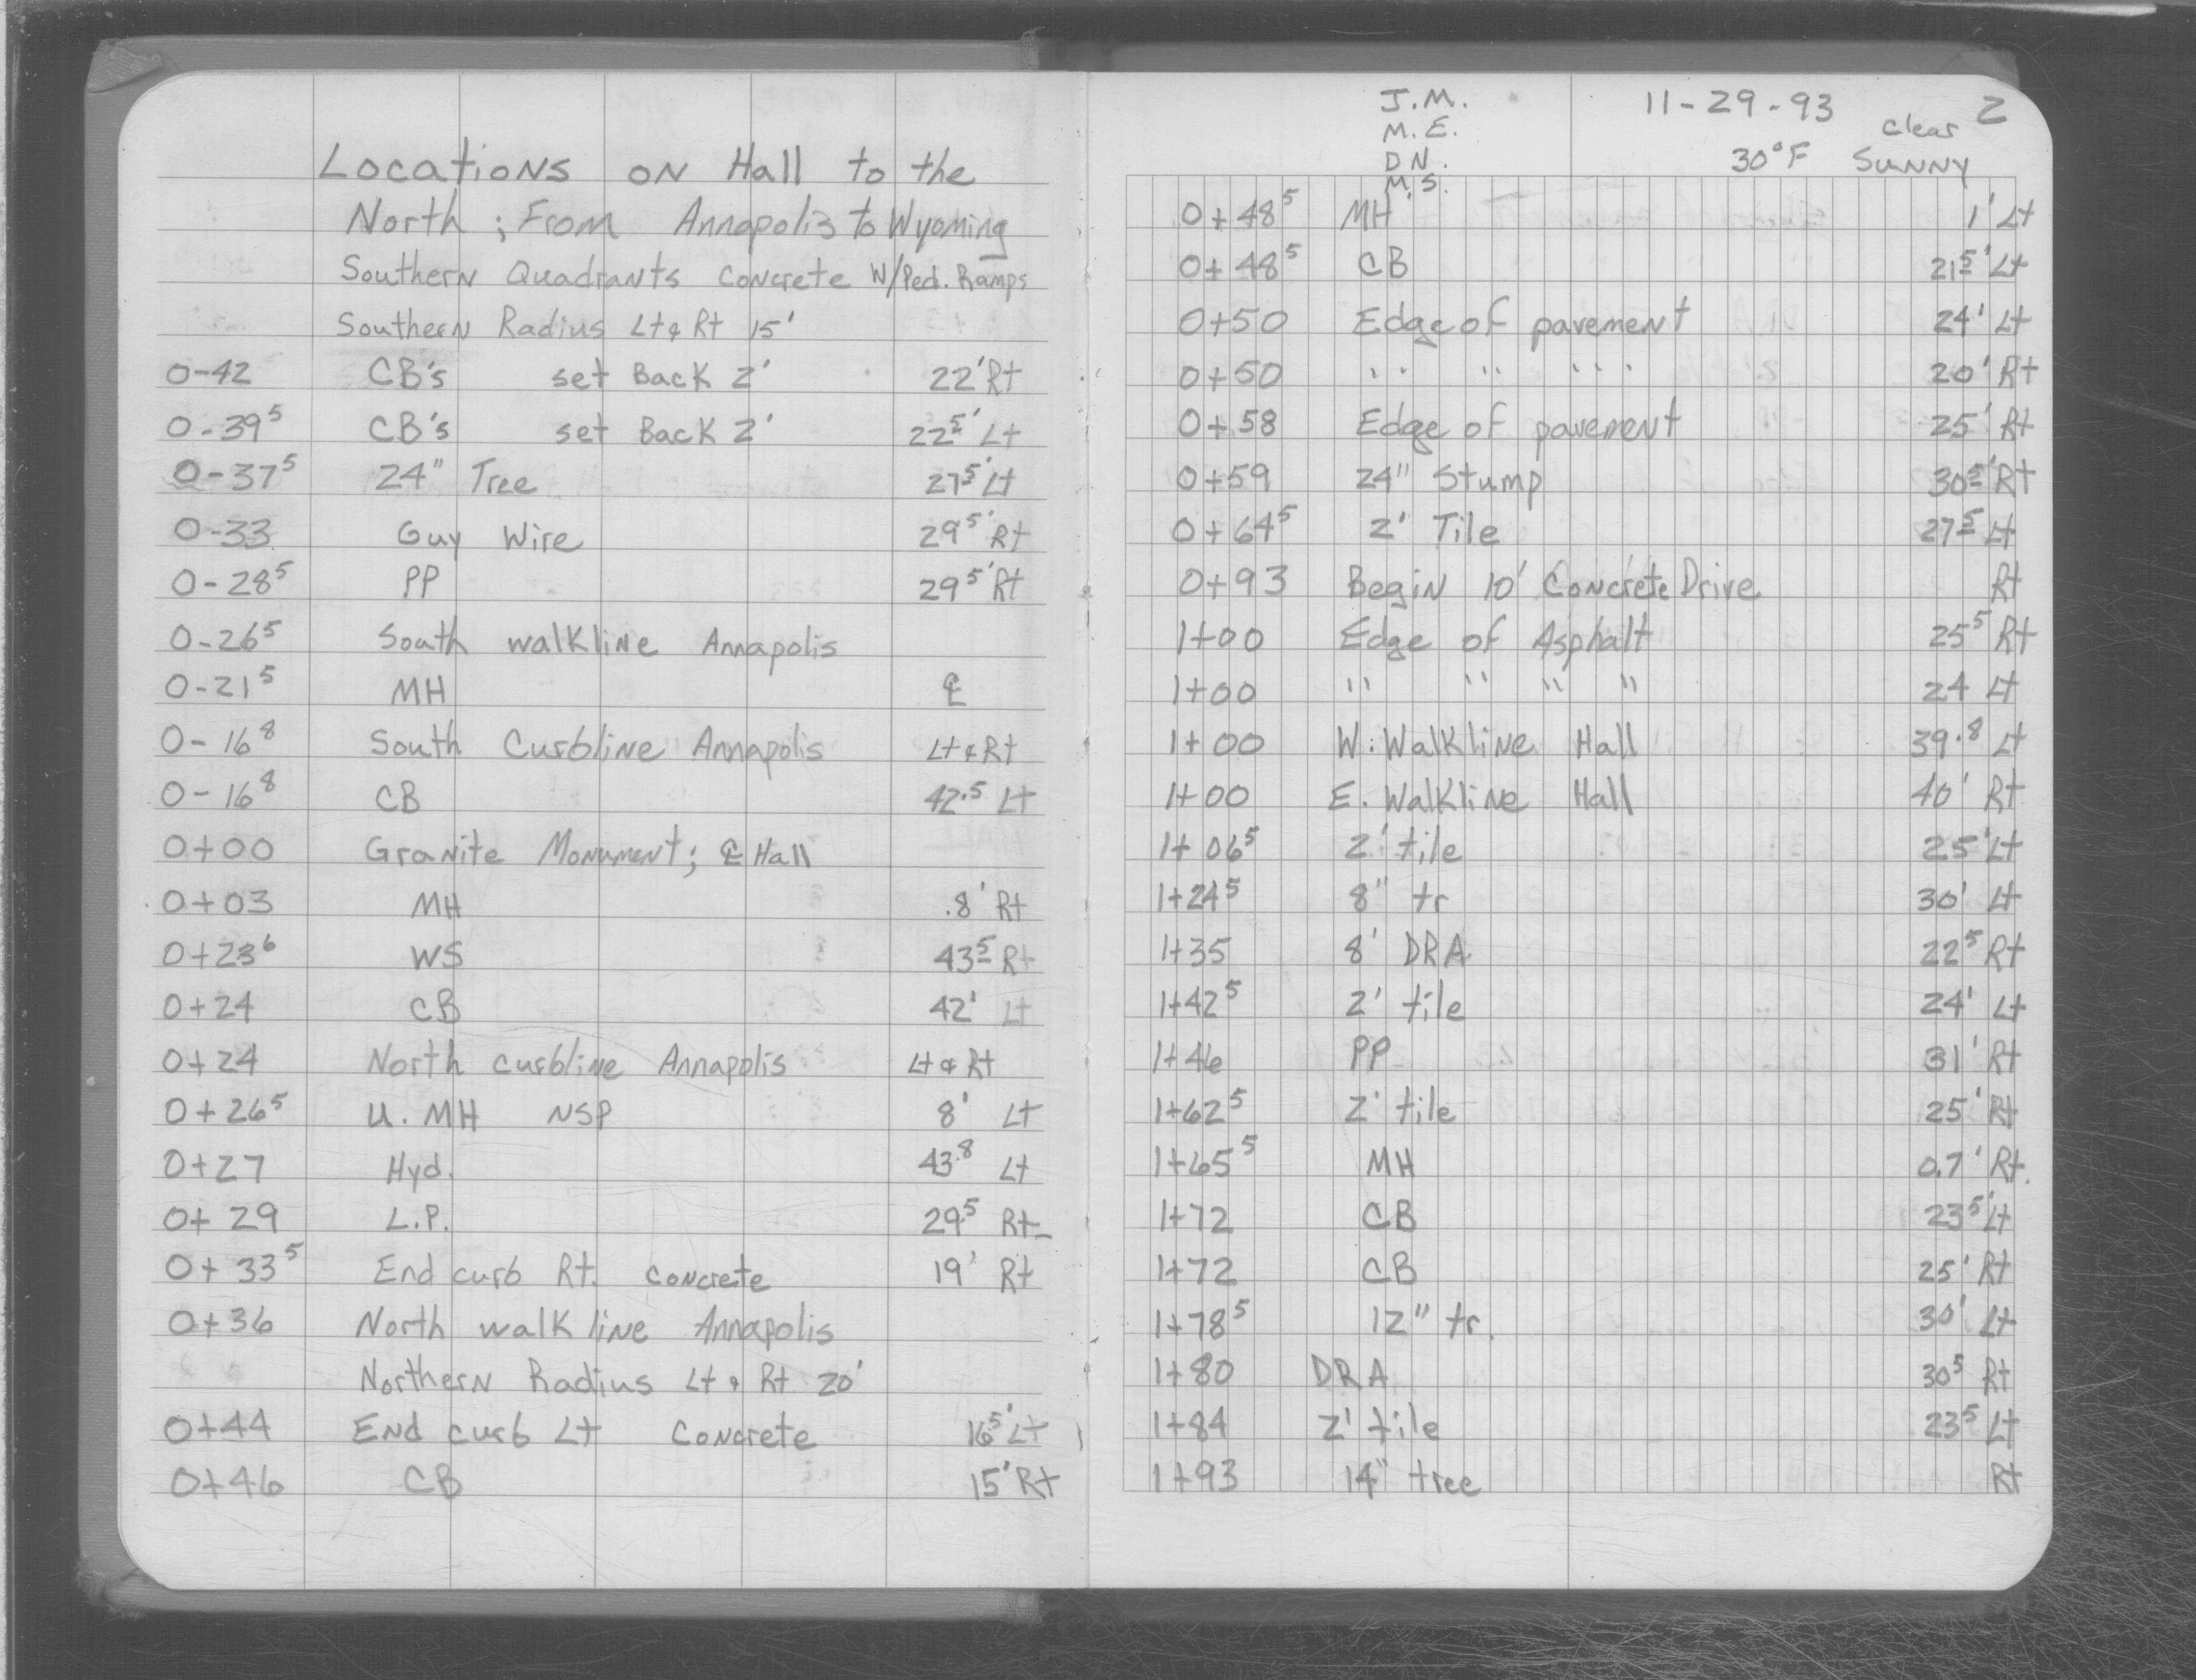 Locations on Hall to the
North ; From Annapolis to Wyoming
Southern Quadrants Concrete W/Ped. Ramps
Southern Radius Lt & Rt 15'
0-42 CB's set Back 2' 22' Rt
0-39⁵ CB's set Back 2' 22⁵' Lt
0-37⁵ 24" Tree 27⁵' Lt
0-33 Guy Wire 29⁵' Rt
0-28⁵ PP 29⁵' Rt
0-26⁵ South walkline Annapolis
0-21⁵ MH ℄
0-16⁸ South Curbline Annapolis Lt & Rt
0-16⁸ CB 42.⁵ Lt
0+00 Granite Monument; ℄ Hall
0+03 MH .8' Rt
0+23⁶ WS 43⁵ Rt
0+24 CB 42' Lt
0+24 North curbline Annapolis Lt & Rt
0+26⁵ U. MH NSP 8' Lt
0+27 Hyd. 43.⁸ Lt
0+29 L.P. 29⁵ Rt
0+33⁵ End curb Rt. concrete 19' Rt
0+36 North walk line Annapolis
Northern Radius Lt & Rt 20'
0+44 End curb Lt Concrete 16⁵' Lt
0+46 CB 15' Rt
J.M. 11-29-93 2
M.E. clear
D.N. 30°F Sunny
M.S.
0+48⁵ MH 1' Lt
0+48⁵ CB 21⁵' Lt
0+50 Edge of pavement 24' Lt
0+50 " " " 20' Rt
0+58 Edge of pavement 25' Rt
0+59 24" Stump 30⁵' Rt
0+64⁵ 2' Tile 27⁵ Lt
0+93 Begin 10' Concrete Drive Rt
1+00 Edge of Asphalt 25⁵ Rt
1+00 " " " " 24 Lt
1+00 W. Walkline Hall 39.⁸ Lt
1+00 E. Walkline Hall 40' Rt
1+06⁵ 2' tile 25' Lt
1+24⁵ 8" tr 30' Lt
1+35 8' DRA 22⁵ Rt
1+42⁵ 2' tile 24' Lt
1+46 PP 31' Rt
1+62⁵ 2' tile 25' Rt
1+65⁵ MH 0.7' Rt.
1+72 CB 23⁵' Lt
1+72 CB 25' Rt
1+78⁵ 12" tr. 30' Lt
1+80 DRA 30⁵ Rt
1+84 2' tile 23⁵ Lt
1+93 14" tree Rt